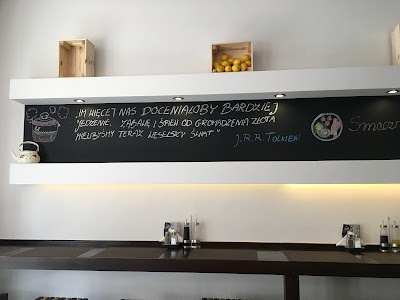 „IM WIĘCEJ NAS DOCENIAŁOBY BARDZIEJ
JEDZENIE, ZABAWĘ I ŚPIEW OD GROMADZENIA ZŁOTA
MIELIBYŚMY TERAZ WESELSZY ŚWIAT"
J.R.R. TOLKIEN